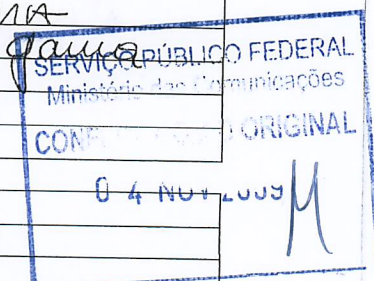 SERVIÇO PÚBLICO FEDERAL
Ministério das Comunicações
ORIGINAL
04 NOV 2009